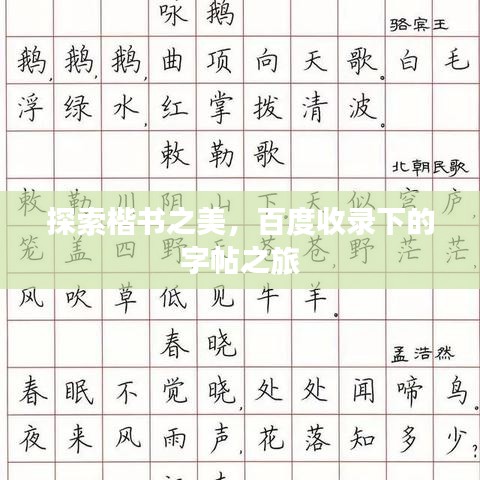 咏鹅
骆宾王
鹅,鹅,鹅,曲项向天歌。白毛
浮绿水,红掌拨清波。
敕勒歌
北朝民歌
敕勒川阴山下天似穹庐,
探索楷书之美，百度收录下的
字帖之旅
笼盖四野。天苍苍,野茫茫,
风吹草低见牛羊。
春晓
孟浩然
春眠不觉晓,处处闻啼鸟。
夜来风雨声,花落知多少?